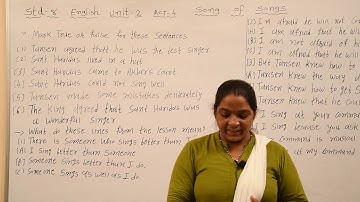 Std-8 English Unit-2 Act-4 Song of songs
* Mark True or false for these Sentences
[1] Tansen agreed that he was the best singer
[2] Sant Haridas lived in a hut
[3] Sant Haridas came to Akbar's Court
[4] Sant Haridas could not sing well
[5] Tansen made some mistakes deliberately
[6] The King agreed that Sant Haridas was
a wonderful singer
→ What do these lines from the lesson mean?
[1] There is Someone who sings better than
[A] I sing better than Someone
[B] Someone sings better than I do.
[C] Someone sings as well as I do
I am afraid he will not Co
I am afraid that he wi
I am not afraid of h
I am afraid that he will no
[3] But Tansen knew how
Tansen knew the way
Tansen knew how to get S
Tansen knew that he co
I sing at your comman
I sing because you ask
command is musical
at my Command